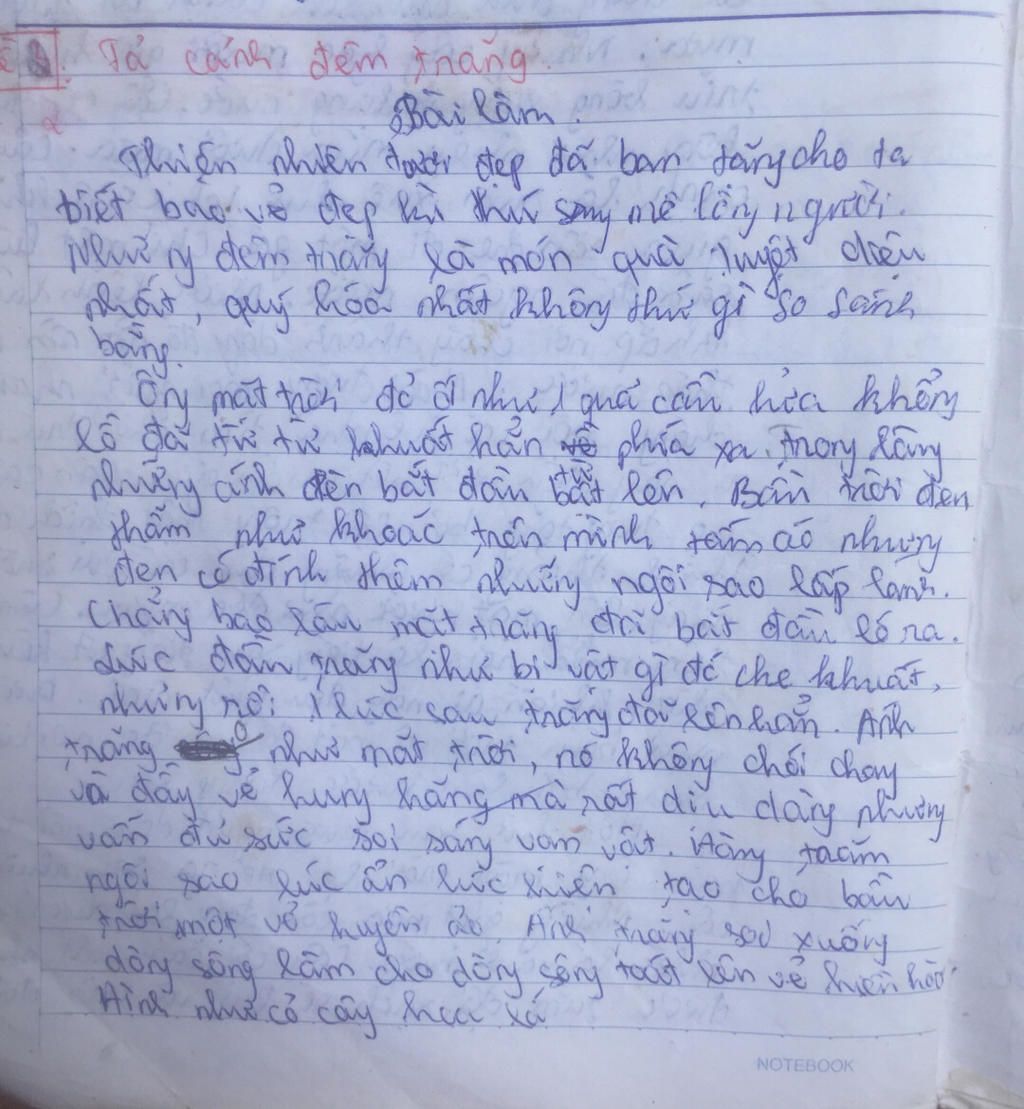 Tả cảnh đêm trăng.
Bài làm.
Thiên nhiên tươi đẹp đã ban tặng cho ta
biết bao vẻ đẹp kì thú say mê lòng người.
Những đêm trăng là món quà tuyệt diệu
nhất, quý hóa nhất không thứ gì so sánh
bằng.
Ông mặt trời đỏ ối như 1 quả cầu lửa khổng
lồ đã từ từ khuất hẳn về phía xa. Trong làng
những ánh đèn bắt đầu bật lên. Bầu trời đen
thẫm như khoác trên mình tấm áo nhung
đen có đính thêm những ngôi sao lấp lánh.
Chẳng bao lâu mặt trăng đã bắt đầu ló ra.
Lúc đầu trăng như bị vật gì đó che khuất,
nhưng rồi 1 lúc sau trăng đã lên hẳn. Ánh
trăng như mặt trời, nó không chói chang
và đầy vẻ hung hăng mà rất dịu dàng nhưng
vẫn đủ sức soi sáng vạn vật. Hàng trăm
ngôi sao lúc ẩn lúc hiện tạo cho bầu
trời một vẻ huyền ảo. Ánh trăng soi xuống
dòng sông làm cho dòng sông toát lên vẻ hiền hòa
Hình như cỏ cây hoa lá
NOTEBOOK